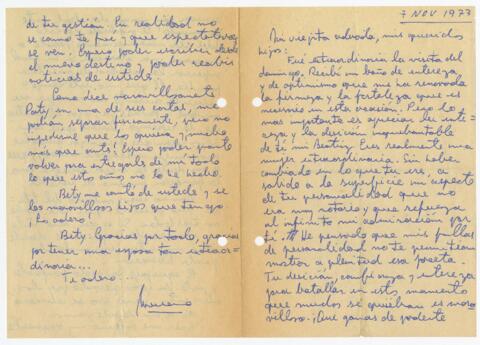 7 NOV 1973
Mi viejita adorada, mis queridos
hijos:
Fue extraordinaria la visita del
domingo. Recibí un baño de entereza
y de optimismo que me ha renovado
la firmeza y la fortaleza que es
necesaria en esta ocasión. Pero lo
más importante es apreciar la
y la decisión inquebrantable
de ti mi Beatriz. Eres realmente una
mujer extraordinaria. Sin haber
cambiado en lo que tú eres, a
salido a la superficie un aspecto
de tu personalidad que no
era muy notorio y que refuerza
al infinito mi admiración por
tí. He pensado que mis fallas
de personalidad no te permitían
mostrar a plenitud esa faceta.
Tu decisión, confianza y entereza
para batallar en estos momentos
que muchos se quiebran es mara
villoso. ¡Qué ganas de poderte
de tu gestión. En realidad no
se como te fué y que espectativas
se ven. Espero poder escribir desde
el nuevo destino y poder recibir
noticias de ustedes.
Como dice maravillosamente
Paty en una de sus cartas, me
podrán separar físicamente, pero no
impedirme que los quiera ¡mucho
más que antes! Espero poder pronto
volver para entregarles de mi todo
lo que estos años no lo he hecho.
Bety me contó de ustedes y se
los maravillosos hijos que tengo
¡Los adoro!
Bety: Gracias por todo, gracias
por tener una esposa tan extraor=
dinaria...
Te adoro.